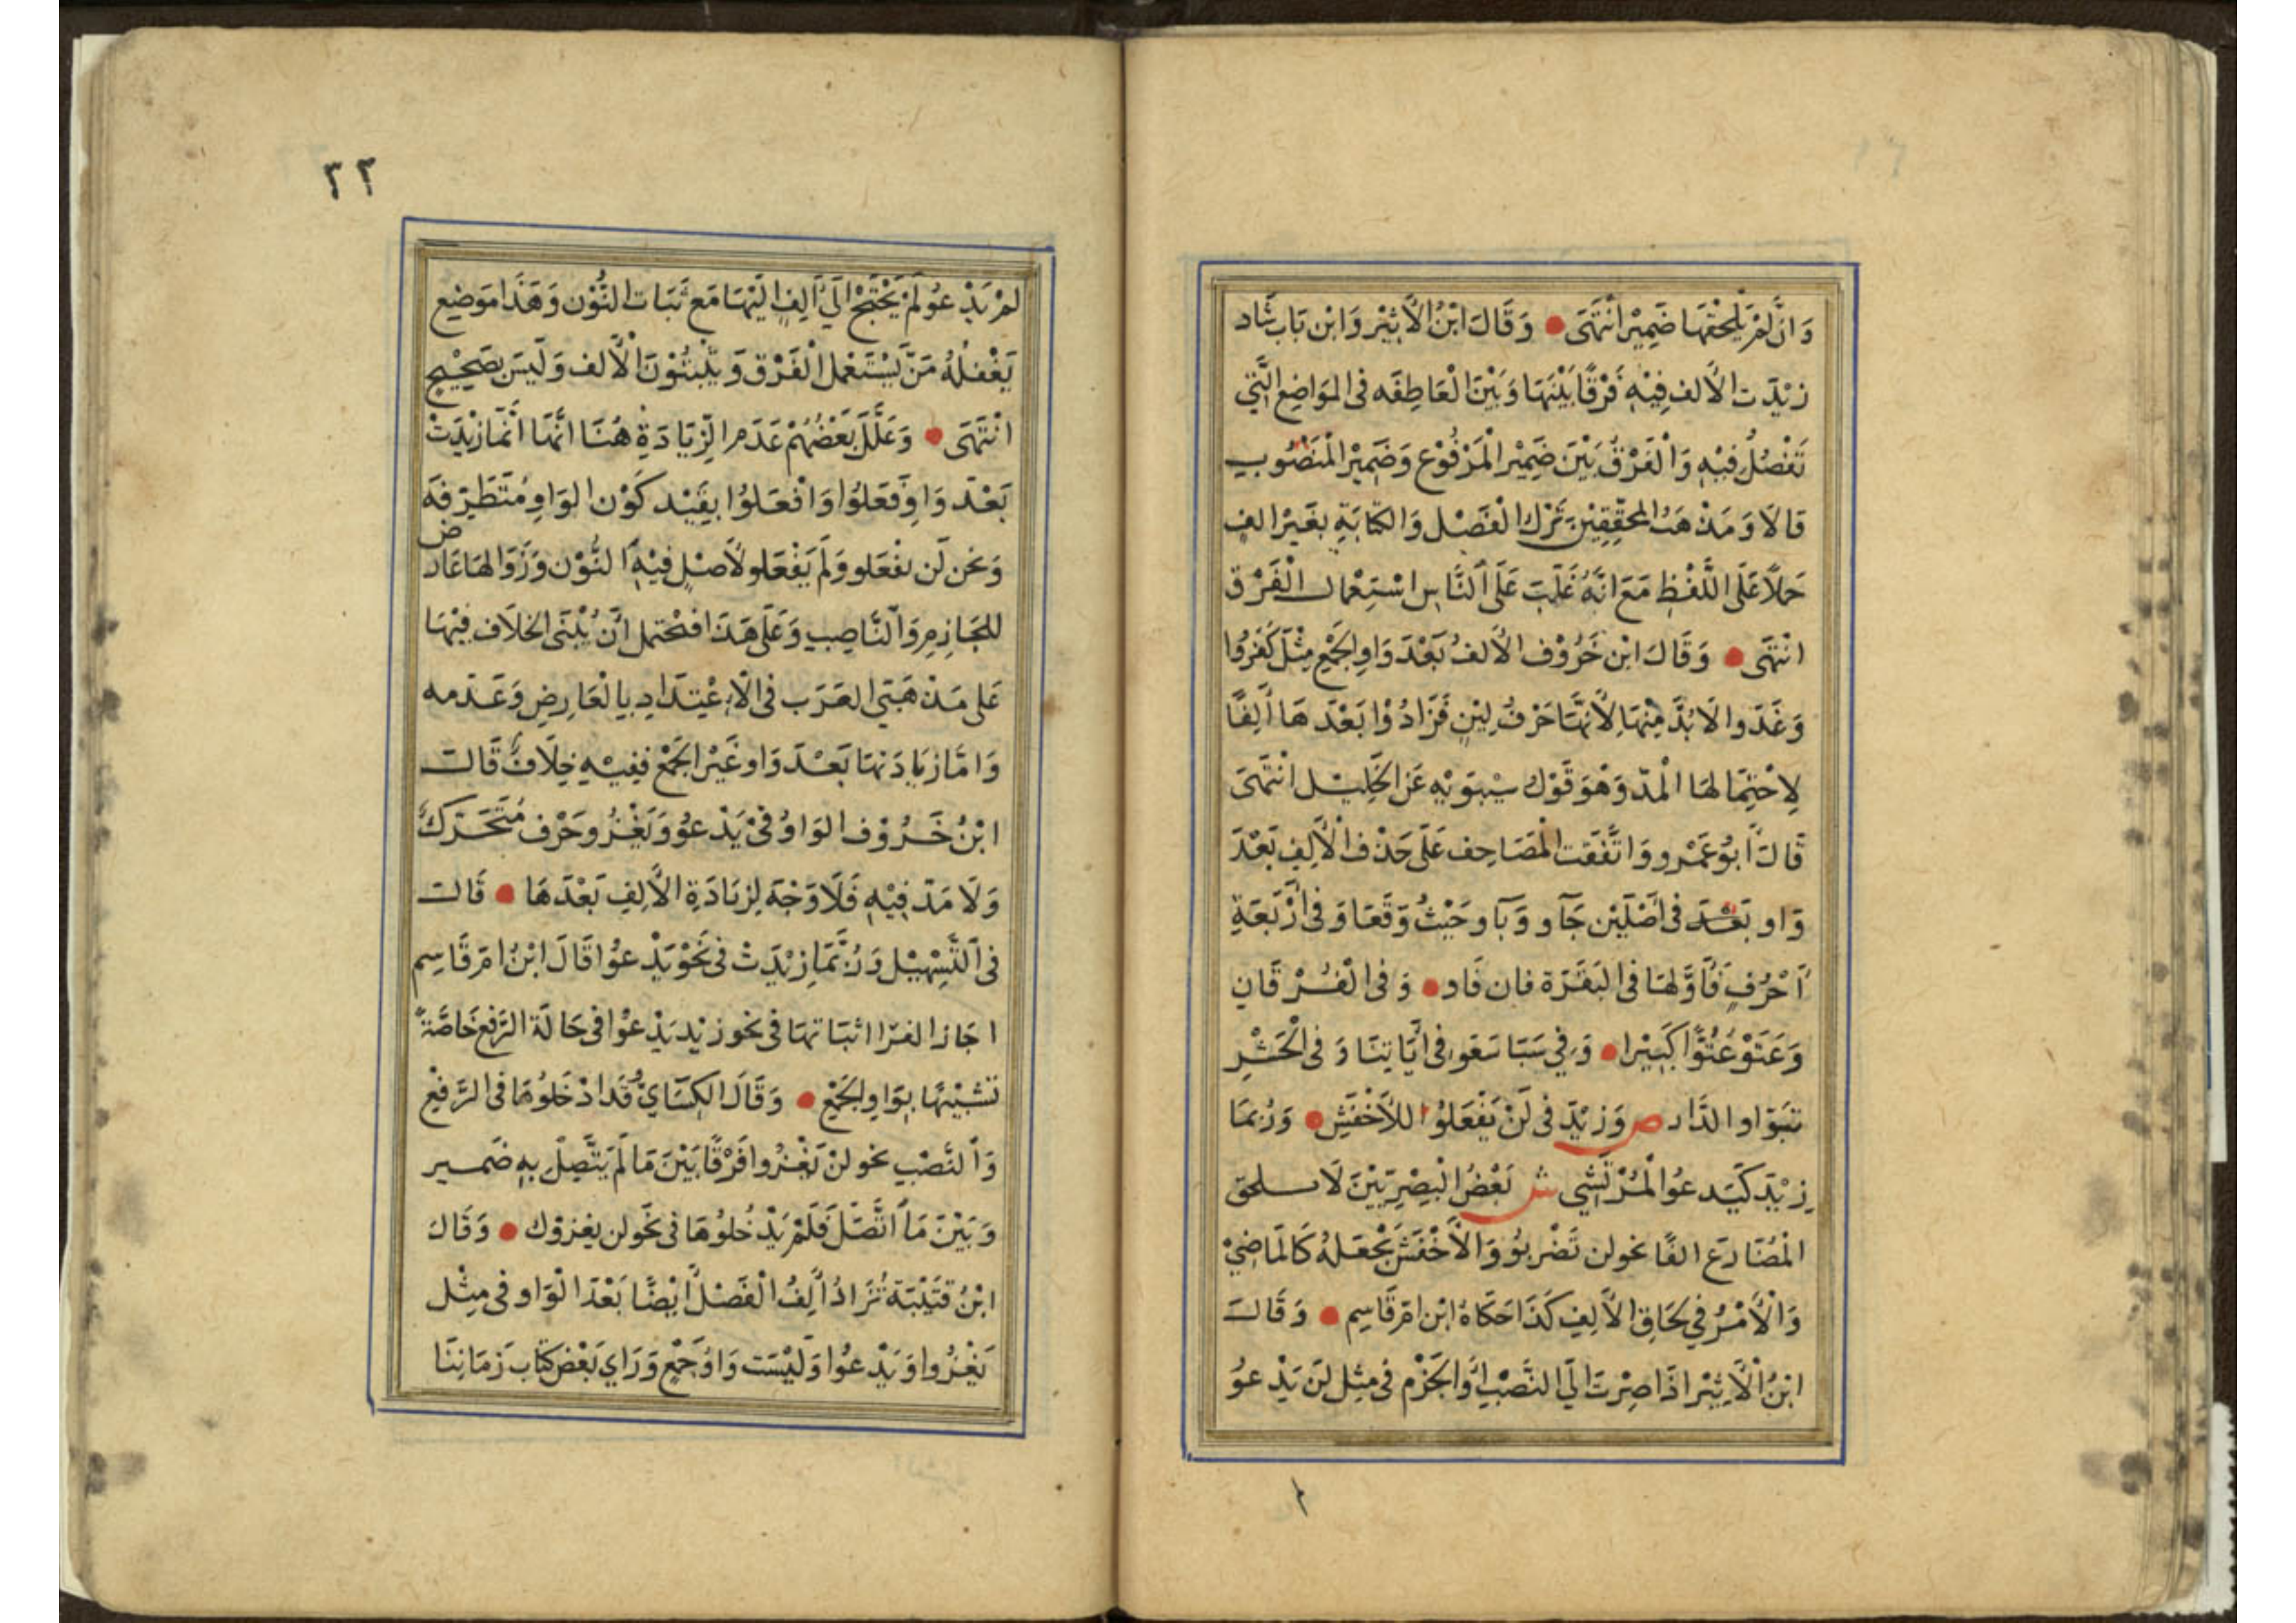 وَانْ لَمْ يَلْحَقْهَا ضَمِيْر انْتَهَى ● وَقَالَ ابْنُ الْأَثِيْر وَابْن بَاب شَاد
زِيْدَت الْأَلف فِيْهِ فَرْقًا بَيْنَهَا وَبَيْنَ الْعَاطِفَه فى المَوَاضِع الَّتِي
تَفْصُلُ فِيْهِ وَالْفَرْقُ بَيْنَ ضَمِيْر الْمَرْفُوْع وَضَمِيْر الْمَنْصُوب
قَالَا وَمَذْهَبُ المحَقِّقِيْنَ تَرْك الْفَصْل وَالكتَابَةِ بغَيْر الف
حَمْلًا عَلَى اللَّفْظِ مَعَ انَّهُ غَلَبَ عَلَى النَّاسِ اسْتِعْمَال الْفَرْق
انْتَهَى ● وَقَالَ ابْن خَرُوْف الْأَلفُ بَعْدَ وَاوِ الْجَمْعِ مِثْلَ كَفَرُوا
وَغَدَوا لَا بُدَّ مِنْهَا لِأَنَّهَا حَرْفُ لِيْنٍ فَزَادُوْا بَعْدَهَا أَلِفًا
لِاحْتِمَالهَا الْمَدّ وَهْوَ قَوْل سِيْبَوَيْهِ عَن الخَلِيْل انْتَهَى
قَالَ أَبُو عَمْرو وَاتَّفَقَت الْمَصَاحِف عَلَى حَذْف الْأَلِفِ بَعْدَ
وَاو بَعْدَ فى أَصْلَيْن جَآو وَبَآو حَيْثُ وَقَعَا وَفى أَرْبَعَةِ
أَحْرُفٍ فَأَوَّلهَا فى البَقَرَة فان فَاو ● وَفى الْفُرْقَانِ
وَعَتَوْ عُتُوًّا كَبِيْرا ● وَفِي سَبَا سَعَو فى أَيَاتِنَا وَفى الْحَشْرِ
تبَوّاو الدَّار ص وَزِيْدَ فى لَنْ يَفْعَلُوا للأَخْفَشِ ● وَرُبمَا
زِيْدَ كَيَدعُوا لْمُرْتَشِي ش بَعْضُ الْبِصْرِيّيْنَ لَا يلحق
الْمُضَارَع الفًا نحو لن تَضْربُوْ وَالْأَخْفَشَ يَجْعَلهُ كَالمَاضِيْ
وَالْأَمْرُ فِي لحَاقِ الْأَلِفِ كَذَا حَكَاهُ ابْن امّ قَاسِم ● وَقَالَ
ابْنُ الْأَثِيْر اذَا صِرْتَ الَى النَّصْبِ أَوَالجَزْم فى مِثِل لَنْ يَدْعُوْ
٢٢
لمْ يَدْعُو لَمْ يَحْتَجْ الَي أَلِفٍ الَيْهَا مَعَ ثَبَات النُّوْن وَهَذَا مَوْضِع
يَغْفلُهُ مَنْ يَسْتَعْمل الْفَرْق وَيُثْبِتُوْنَ الْأَلف وَلَيسَ بِصَحِيْحٍ
انْتَهَى ● وَعَلَّلَ بَعْضُهُمْ عَدَم الزِّيَادَةِ هُنَا انَّهَا انَّمَا زِيْدَتْ
بَعْدَ وَاوِ فَعَلُوا وَافْعَلُوْا بِقَيْد كَوْن الوَاوِ مُتَطَرِّفَه
وَنحن لَن يفْعَلو وَلَمْ يَفْعَلو لْأَصْل فِيْهِ النُّوْن وَزَوَالهَا عَارض
للجَازِمِ وَالنَّاصِبِ وَعَلَى هَذَا فيَحْتمل انْ يُبْنَى الخلَاف فِيْهَا
عَلى مَذْهَبَي العَرَب فى الْإِعْتِدَادِ بِالْعَارِضِ وَعَدَمه
وَامَّا زيَادَتهَا بَعْدَ وَاو غَيْر الجَمْع فَفِيْهِ خِلَافٌ قَالَ
ابْنُ خَرُوْف الوَاوُ فى يَدْعُو وَيَغْزُو حَرْف مُتَحَرّك
وَلَا مَدّ فِيْهِ فَلَا وَجْهَ لِزيَادَةِ الْأَلِفِ بَعْدَهَا ● قَالَ
فى التَّسْهِيْل وَرُبَّمَا زِيْدَتْ فى نَحْو يَدْعُوا قَالَ ابْنُ امّ قَاسِم
اجَاز الفرّا اثبَاتهَا فى نحو زيْد يَدْعوْا فى حَالَة الرَّفع خَاصَّةً
تَشْبيْهًا بِوَاوِ الجَمْعِ ● وَقَالَ الكِسَايُّ قَد ادْخَلُوهَا فى الرَّفْع
وَالنَّصْبِ نحو لنْ يَغْزُوا فَرْقًا بَيْنَ مَا لَمْ يَتَّصِلْ بهِ ضَمير
وَبَيْنَ مَا اتَّصَلَ فَلَمْ يَدْخُلوُهَا فى نَحْو لن يغزوْك ● وَقَالَ
ابْنُ قتَيْبَة تُزَادُ أَلِفُ الْفَصْل أَيْضًا بَعْدَ الْوَاو فى مِثْل
يَغْزُوا وَيَدْعُوا وَلَيْسَت وَاوَ جَمْعٍ وَرَاي بَعْض كتّاب زَمَانِنَا